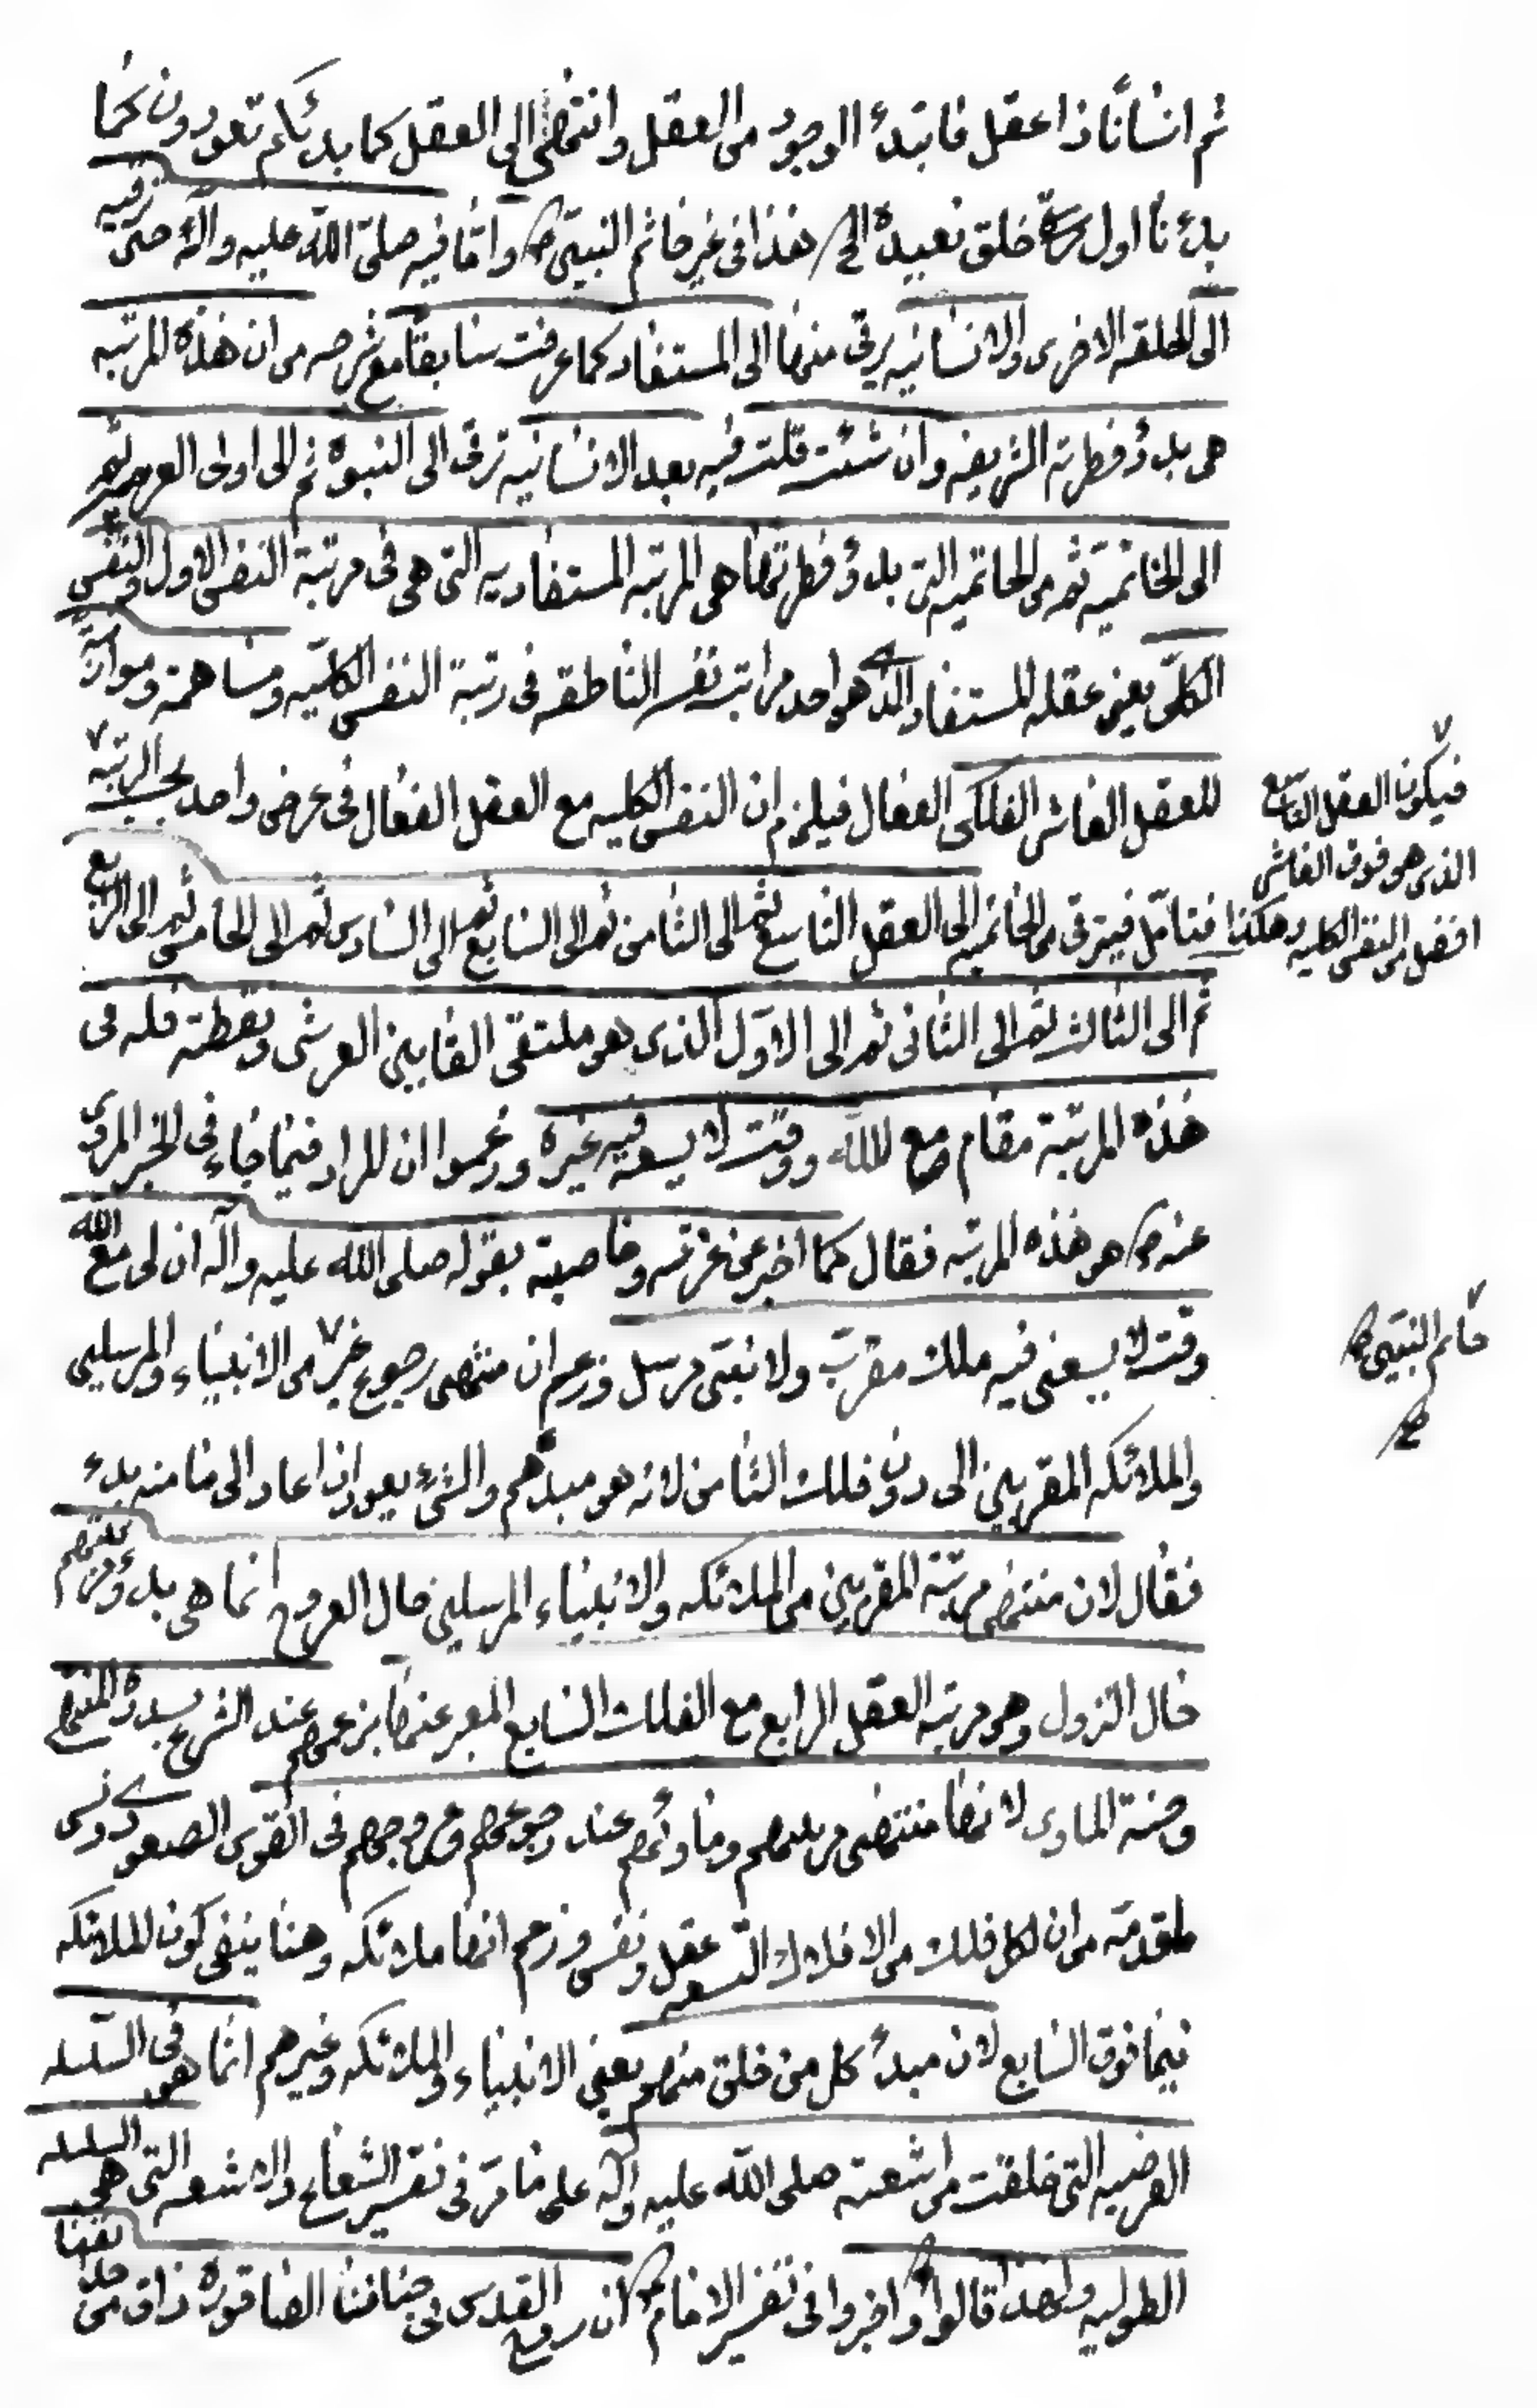 ثم انسانًا ذا عقل فابتدء الوجود من العقل وانتهى الى العقل كما بدئكم تعودون كما
بدءنا اول خلق نعيده الخ هذا فى غير خاتم النبيين ص واما فيه صلى الله عليه وآله حتى ترقيه
الى الخلقه الاخرى والانسانيه يرقى منها الى المستفاد كما عرفت سابقا مع شرحه من ان هذه المرتبه
هى بدؤ فطرته الشريفه وان شئت قلت فيه بعد الانسانيه ترقى الى النبوه ثم الى اولى العزميه ثم
الى الخاتميه ثم من الخاتميه التى بدؤ فطرتها هى المرتبه المستفاديه التى هى فى مرتبة النفس الاول والنفس
الكلى يعنى عقله المستفاد الذى هو احد مراتب نفسه الناطقه فى رتبة النفس الكليه ومساهمة وموازية
للعقل العاشر الفلكى الفعال فيلزم ان النفس الكليه مع العقل الفعال فى عرض واحد بحسب الرتبه
فيكون العقل التاسع
الذى هو فوق العاشر
افضل من النفس الكليه وهكذا
فتامّل فيترقى من الخاتميه الى العقل التاسع ثم الى الثامن ثم الى السابع ثم الى السادس ثم الى الخامس ثم الى الرابع
ثم الى الثالث ثم الى الثانى ثم الى الاول الذى هو ملتقى القابين العرشى ونقطته فله فى
هذه المرتبة مقام مع الله ووقت لا يسعه فيه غيره وزعموا ان المراد فيما جاء فى الخبر المروى
عنه ص هو هذه المرتبه فقال كما اخبر عن مرتبته وخاصيته بقوله صلى الله عليه وآله ان لى مع الله
وقت لا يسعنى فيه ملك مقرب ولا نبى مرسل وزعم ان منتهى رجوع غير من الانبياء والمرسلين
خاتم النبيين ص
صح
والملائكه المقربين الى دون فلك الثامن لانه هو مبدئهم والشئ يعود اذا عاد الى ما منه بدء
فقال لان منتهى مرتبة المقربين من الملائكه والانبياء المرسلين حال العروج انما هى بدؤ مرتبتهم
حال النزول وهو مرتبه العقل الرابع مع الفلك السابع المعبر عنها بزعمهم عند الشرع بسدرة المنتهى
وجنة الماوى لانها منتهى مرتبتهم وماوئهم عند رجوعهم وعروجهم فى القوس الصعودى ونسى
ما قدمه من ان لكل فلك من الافلاك التسعه عقل ونفس وزعم انها ملائكه وهنا ينفى كون الملائكه
فيما فوق السابع لان مبدء كل من خلق منهم يعنى الانبياء والملائكه وغيرهم انما هو فى السلسله
العرضيه التى خلقت من اشعته صلى الله عليه وآله على ما مر فى تفسير الشعاع والاشعه التى هى السلسله
الطوليه ولهذا قالوا واخبروا فى تفسير الامام ان روح القدس فى جنان الصاقوره ذاق من حدائقنا